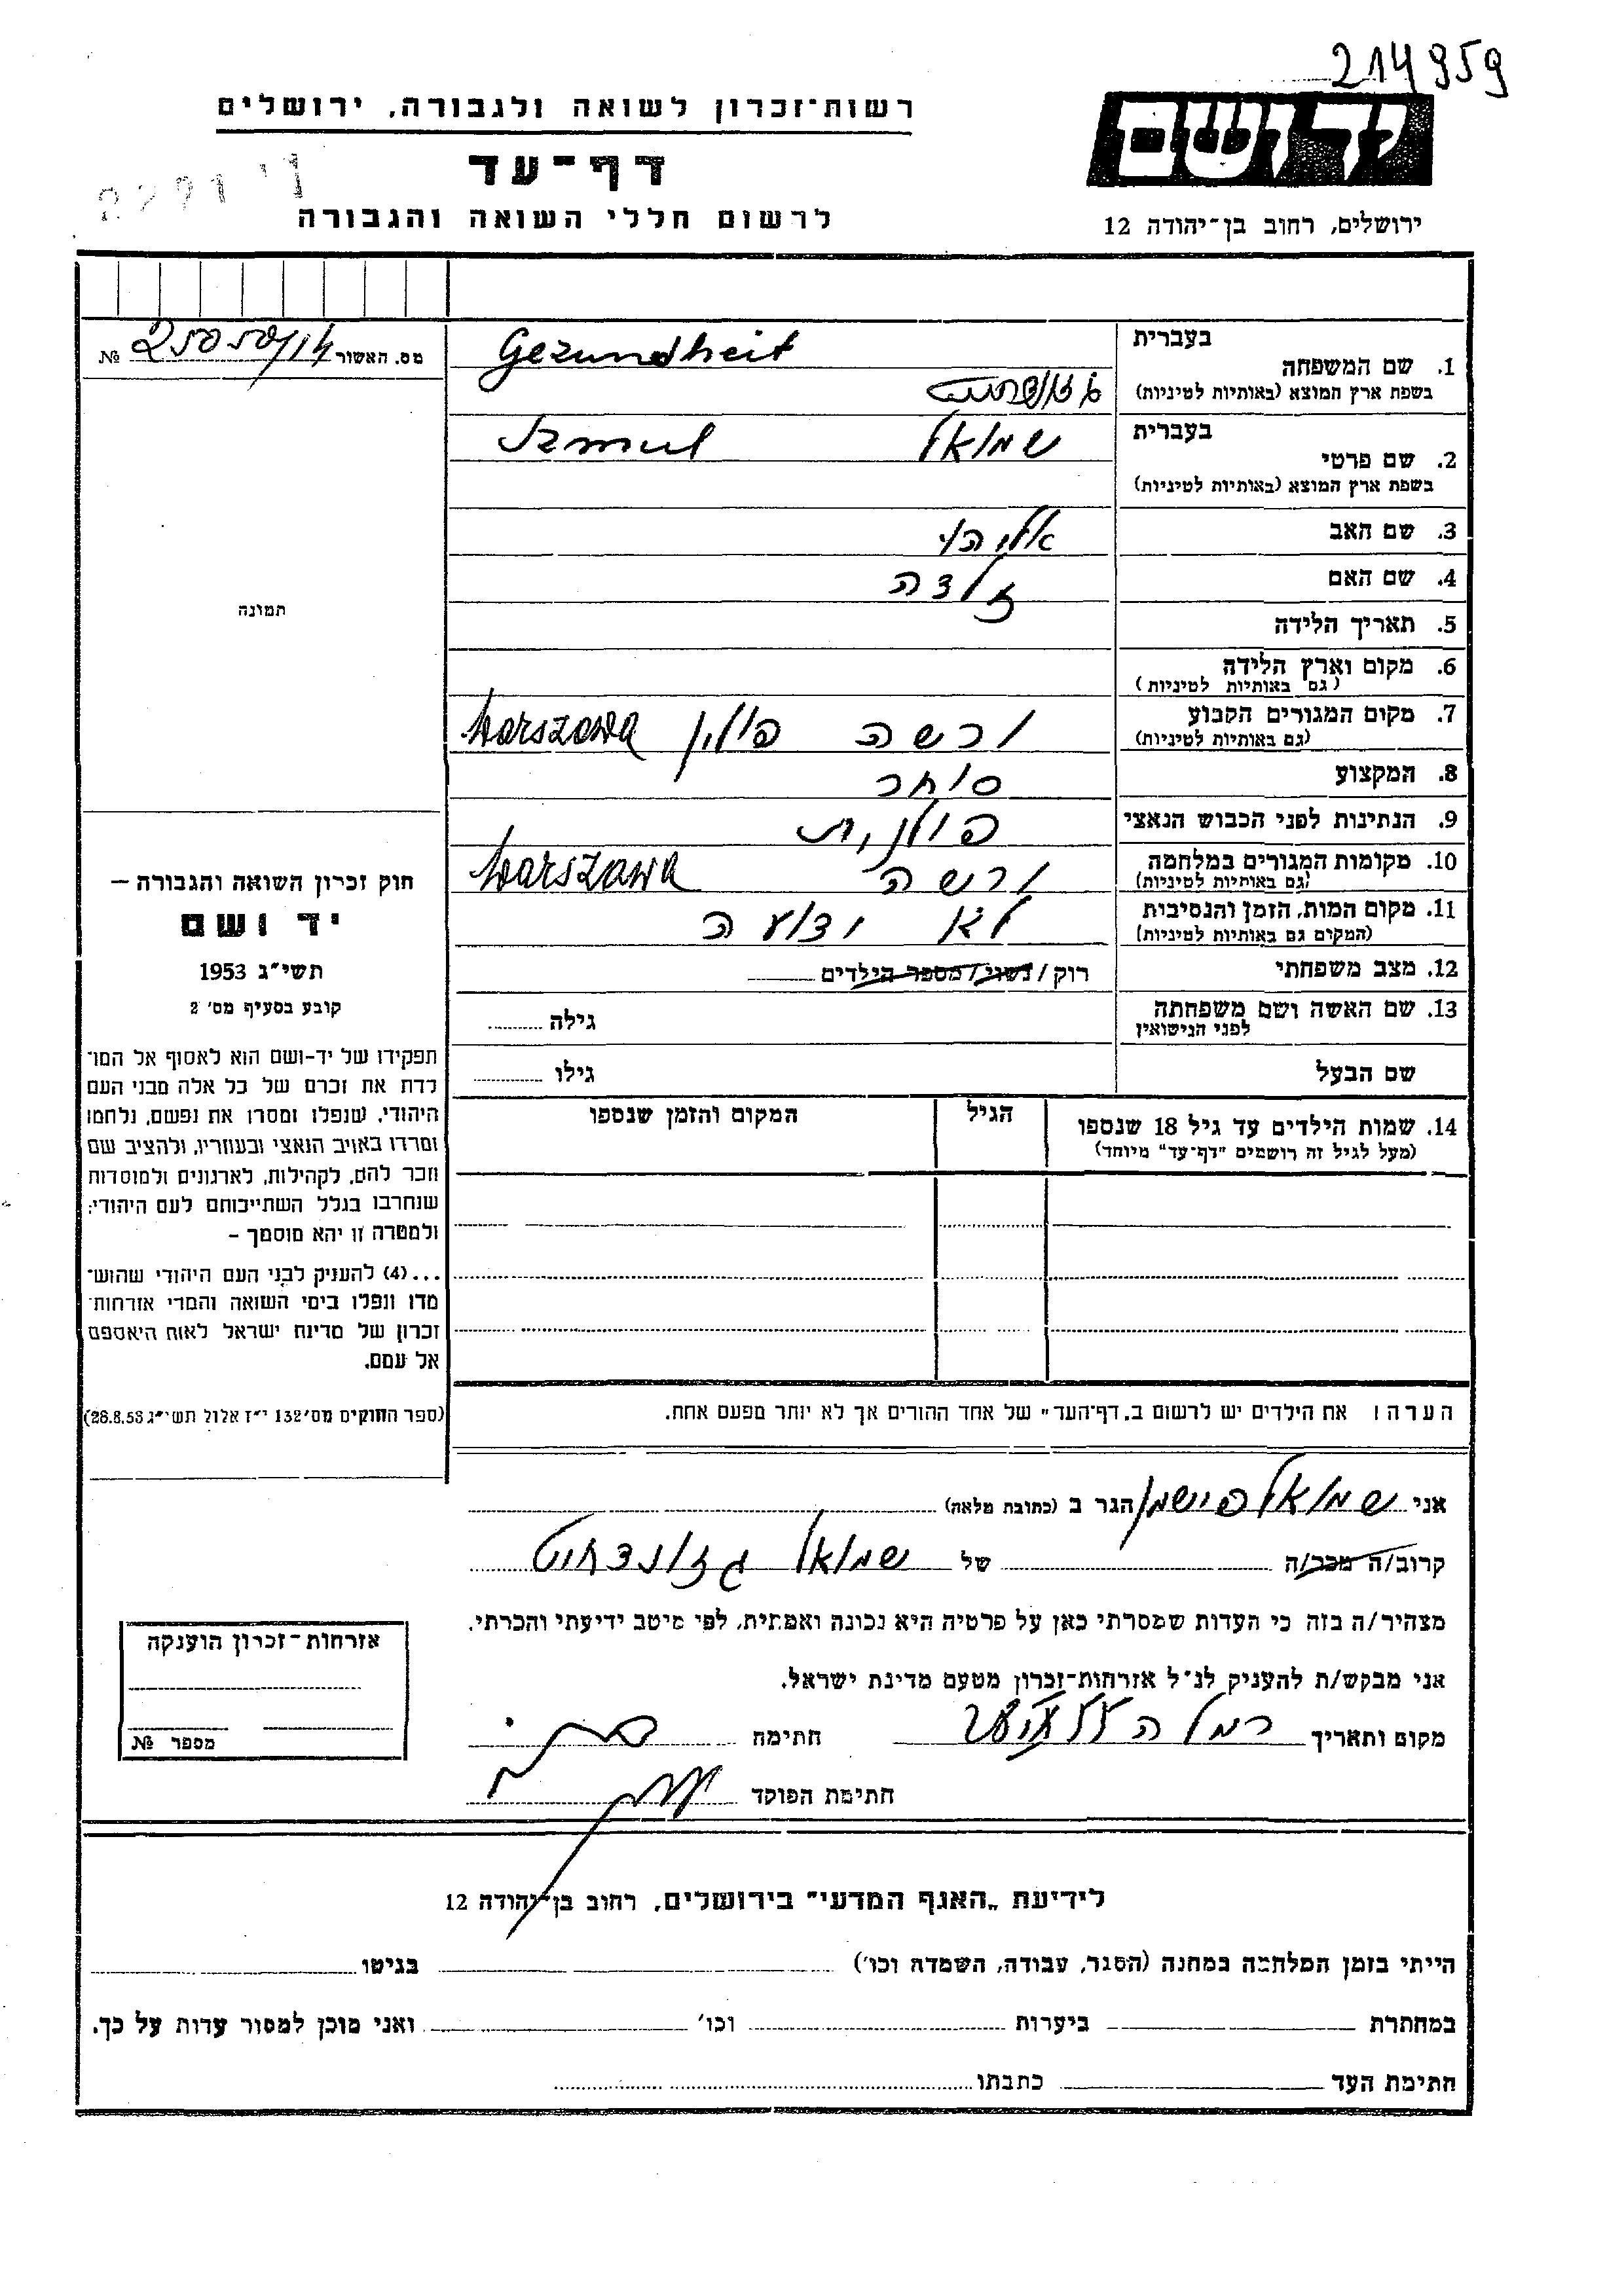 214959
יד ושם
ירושלים, רחוב בן־יהודה 12
רשות־זכרון לשואה ולגבורה, ירושלים
דף־עד
לרשום חללי השואה והגבורה
מס. האשור 25050/14 №
תמונה
חוק זכרון השואה והגבורה –
יד ושם
תשי״ג 1953
קובע בסעיף מס׳ 2
תפקידו של יד-ושם הוא לאסוף אל המו־
לדת את זכרם של כל אלה מבני העם
היהודי, שנפלו ומסרו את נפשם, נלחמו
ומרדו באויב הנאצי ובעוזריו, ולהציב שם
וזכר להם, לקהילות, לארגונים ולמוסדות
שנחרבו בגלל השתייכותם לעם היהודי;
ולמטרה זו יהא מוסמך –
...(4) להעניק לבני העם היהודי שהוש־
מדו ונפלו בימי השואה והמרי אזרחות־
זכרון של מדינת ישראל לאות היאספם
אל עמם.
(ספר החוקים מס׳ 132 י״ז אלול תשי״ג 28.8.53)
בעברית
Gezundheit
1. שם המשפחה
בשפת ארץ המוצא (באותיות לטיניות)
בעברית שמואל Szmul
2. שם פרטי
בשפת ארץ המוצא (באותיות לטיניות)
3. שם האב אליהו
4. שם האם זלדה
5. תאריך הלידה
6. מקום וארץ הלידה
(גם באותיות לטיניות)
7. מקום המגורים הקבוע ורשה פולין Warszawa
(גם באותיות לטיניות)
8. המקצוע סוחר
9. הנתינות לפני הכבוש הנאצי פולנית
10. מקומות המגורים במלחמה ורשה Warszawa
(גם באותיות לטיניות)
11. מקום המות, הזמן והנסיבות לא ידועה
(המקום גם באותיות לטיניות)
12. מצב משפחתי רוק / נשוי / מספר הילדים
13. שם האשה ושם משפחתה גילה
לפני הנישואין
שם הבעל גילו
14. שמות הילדים עד גיל 18 שנספו הגיל המקום והזמן שנספו
(מעל לגיל זה רושמים "דף־עד" מיוחד)
הערה: את הילדים יש לרשום ב„דף־העד" של אחד ההורים אך לא יותר מפעם אחת.
אני שמואל פישמן הגר ב (כתובת מלאה)
קרוב/ה מכר/ה של שמואל גזונדהייט
מצהיר/ה בזה כי העדות שמסרתי כאן על פרטיה היא נכונה ואמתית, לפי מיטב ידיעתי והכרתי.
אני מבקש/ת להעניק לנ״ל אזרחות־זכרון מטעם מדינת ישראל.
מקום ותאריך רמלה חתימה
חתימת הפוקד
אזרחות־זכרון הוענקה
מספר №
לידיעת „האגף המדעי" בירושלים, רחוב בן־יהודה 12
הייתי בזמן המלחמה במחנה (הסגר, עבודה, השמדה וכו׳) בגיטו
במחתרת ביערות וכו׳ ואני מוכן למסור עדות על כך.
חתימת העד כתבתו